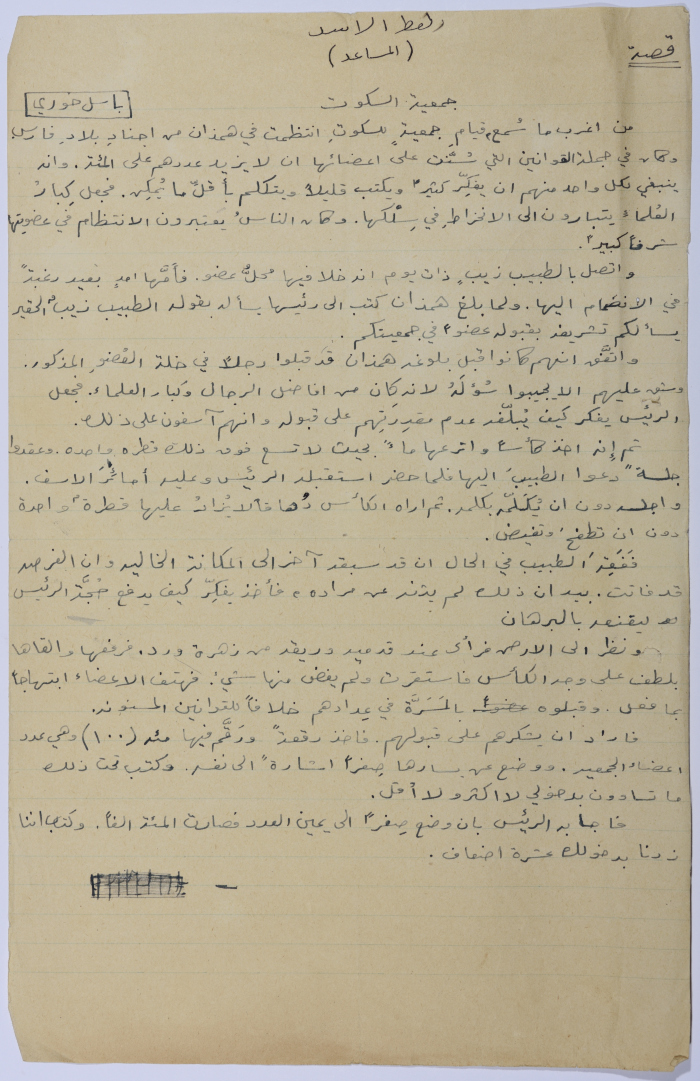 رهط الاسد
(المساعد)
قصة
باسل خوري
جمعية السكوت
من اغرب ما سُمع قيام جمعيةٍ للسكوتِ انتظمت في همذان من اجنادِ بلادِ فارس
وكان في جملة القوانين التي سُنَّت على اعضائها ان لا يزيد عددهم على المئة. وانه
ينبغي لكل واحد منهم ان يفكِّر كثيرًا ويكتب قليلاً ويتكلم بأقلَّ ما يُمكِن. فجعل كِبارُ
العُلماءِ يتبارون الى الانخراطِ في سِلْكها. وكان الناسُ يَعتبرون الانتظام في عضويتها
شرفاً كبيرًا.
واتصل بالطبيب زيبٍ ذات يوم انه خلا فيها محلُّ عضو. فأمَّها امدٍ بعيد رغبةً
في الانضمام اليها. ولما بلغ همذان كتب الى رئيسها يسأله بقوله الطبيب زيبٌ الحقير
يسألكم تشريفه بقبوله عضواً في جمعيتكم.
واتَّفق انهم كانوا قبل بلوغه همذان قد قبلوا رجلاً في خلة العُضوِ المذكور.
وشق عليهم الا يجيبوا سُؤلَهُ لانه كان من افاضل الرجال وكبار العلماء. فجعل
الرئيس يفكر كيف يُبلّغه عدم مقدِرتِهم على قبوله وانهم آسفون على ذلك.
ثم إنه اخذ كأساً واترعها ماءً بحيث لا تسع فوق ذلك قطره واحده. وعقدوا
جلسةً دعوا الطبيبَ اليها فلما حضر استقبله الرئيس وعليه أمائرُ الاسف.
واجلسه دون ان يُكَلِّمه بكلمه. ثم اراه الكأس دُهاقا لا يُزادُ عليها قطرةٌ واحدة
دون ان تطفحَ وتفيض.
فَفَقِهَ الطبيب في الحال ان قد سبقه آخر الى المكانة الخاليه وان الفرصه
قد فاتت. بيد ان ذلك لم يثنه عن مراده، فأخذ يفكِّر كيف يدفع حُجَّة الرئيس
ليقنعه بالبرهان
ونظر الى الارض فرأى عند قدميه وريقة من زهرة ورد. فرفعها والقاها
بلطف على وجه الكأس فاستقرت ولم يفض منها شيء. فهتف الاعضاء ابتهاجاً
بما فعل. وقبلوه عضواً بالمَسَرَّة في عِدادهم خلافاً للقوانين المسنونه.
فاراد ان يشكرهم على قبولهم. فاخذ رقعةً ورَقَّم فيها مئه (١٠٠) وهي عدد
اعضاء الجمعيه. ووضع عن يسارها صِفراً اشارةً الى نفسه. وكتب تحت ذلك
ما تساوون بدخولي لا اكثر ولا أقل.
فاجابه الرئيس بان وضع صِفراً الى يمين العدد فصارت المئة الفاً. وكتب اننا
زدنا بدخولك عشرة اضعاف.